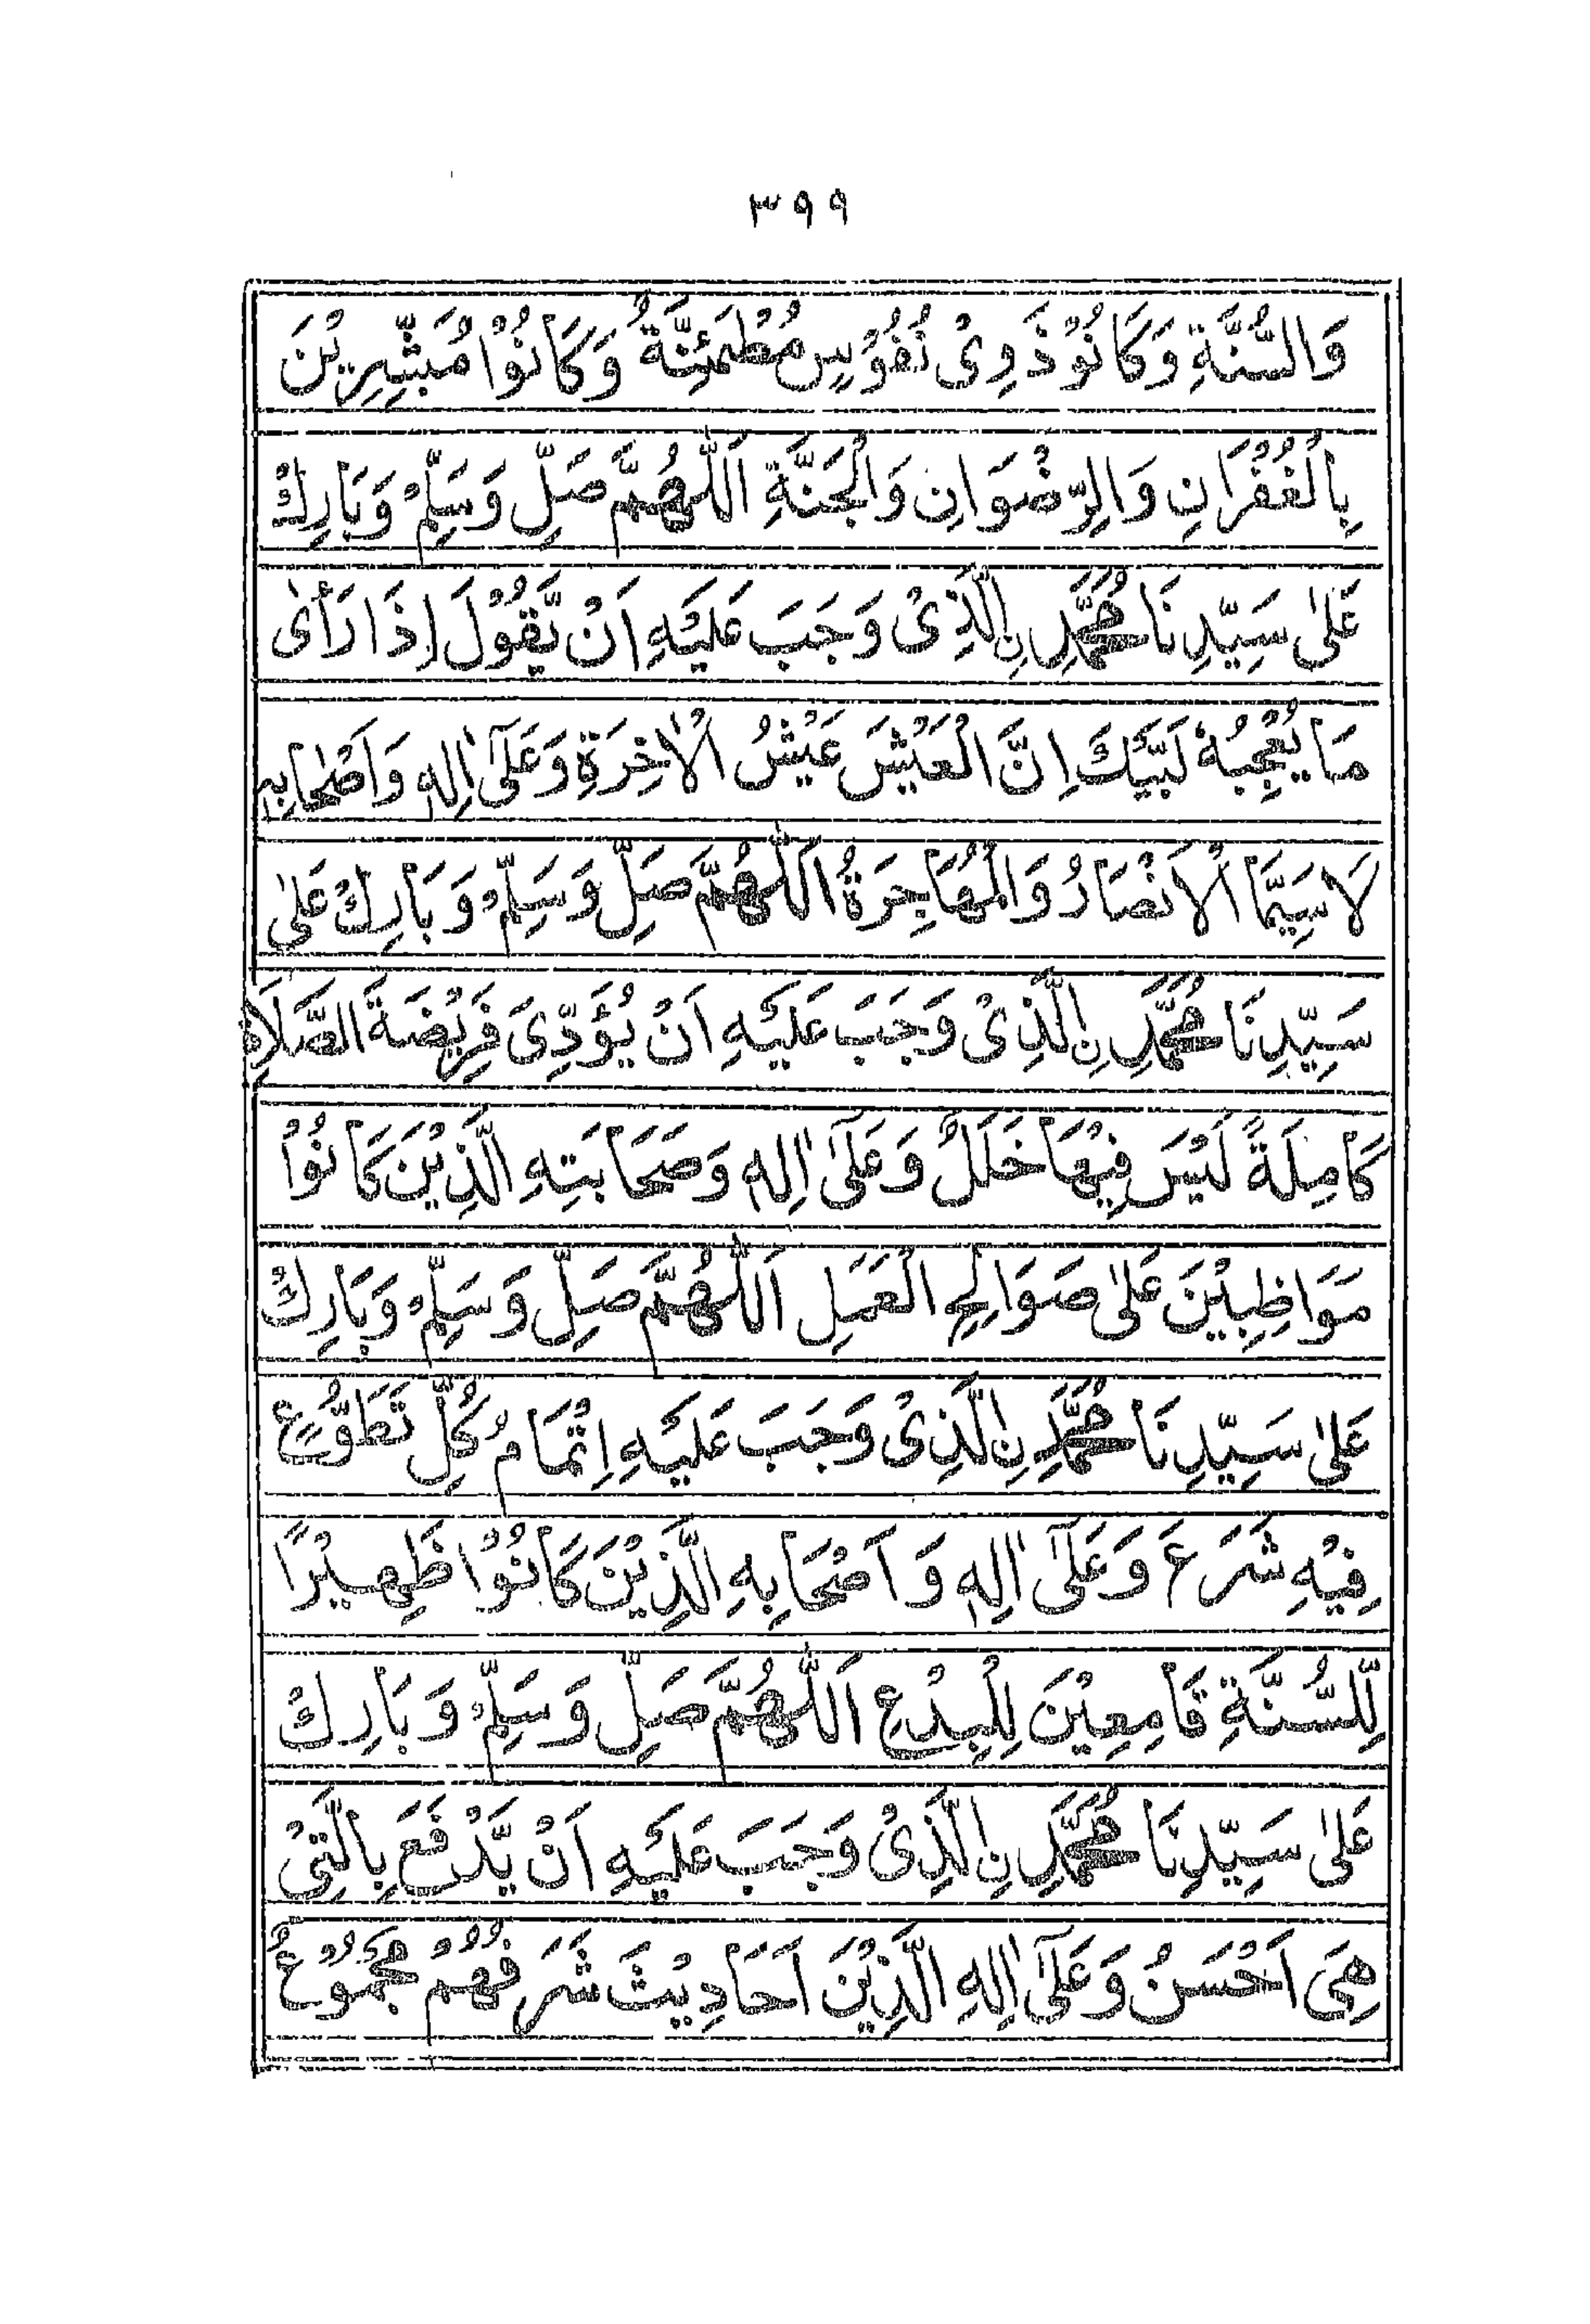 ٣٩٩
وَالسُّنَّةِ وَكَانُوْ ذَوِىْ نُفُوْسٍ مُطْمَئِنَّةُ وَكَانُوْا مُبَشِّرِيْنَ
بِالْغُفْرَانِ وَالرِّضْوَانِ وَالْجَنَّةِ اَللّٰهُمَّ صَلِّ وَسَلِّمْ وَبَارِكْ
عَلٰى سَيِّدِنَا مُحَمَّدِ نِ الَّذِىْ وَجَبَ عَلَيْهِ اَنْ يَّقُوْلَ اِذَا رَأٰى
مَا يُعْجِبُهٗ لَبَّيْكَ اِنَّ الْعَيْشَ عَيْشُ الْاٰخِرَةِ وَعَلٰٓى اٰلِهٖ وَاَصْحَابِهٖ
لَاسِيَّمَا الْاَنْصَارُ وَالْمُهَاجِرَةُ اَللّٰهُمَّ صَلِّ وَسَلِّمْ وَبَارِكْ عَلٰى
سَيِّدِنَا مُحَمَّدِ نِ الَّذِىْ وَجَبَ عَلَيْهِ اَنْ يُؤَدِّىَ فَرِيْضَةَ الصَّلَاةِ
كَامِلَةً لَيْسَ فِيْهَا خَلَلٌ وَعَلٰٓى اٰلِهٖ وَصَحَابَتِهِ الَّذِيْنَ كَانُوْا
مَوَاظِبِيْنَ عَلٰى صَوَالِحِ الْعَمَلِ اَللّٰهُمَّ صَلِّ وَسَلِّمْ وَبَارِكْ
عَلٰى سَيِّدِنَا مُحَمَّدِ نِ الَّذِىْ وَجَبَ عَلَيْهِ اِتْمَامُ كُلِّ تَطَوُّعٍ
فِيْهِ شَرَعَ وَعَلٰٓى اٰلِهٖ وَاَصْحَابِهِ الَّذِيْنَ كَانُوْا ظَهِيْرًا
لِّلسُّنَّةِ قَامِعِيْنَ لِلْبِدْعِ اَللّٰهُمَّ صَلِّ وَسَلِّمْ وَبَارِكْ
عَلٰى سَيِّدِنَا مُحَمَّدِ نِ الَّذِىْ وَجَبَ عَلَيْهِ اَنْ يَّدْفَعَ بِالَّتِىْ
هِىَ اَحْسَنُ وَعَلٰٓى اٰلِهِ الَّذِيْنَ اَحَادِيْثَ شَرَفِهُمْ مَجْمُوْعٌ